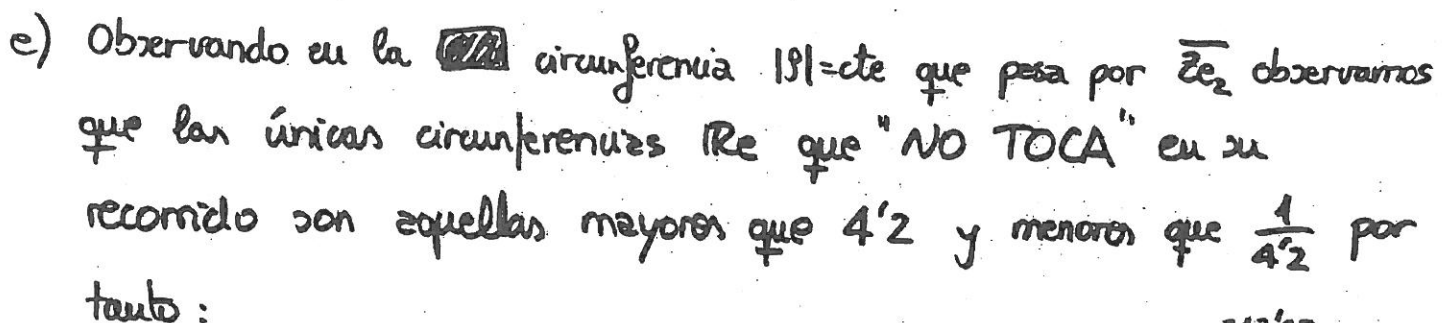 e) Observando en la circunferencia |ρ|=cte que pasa por \overline{Ze_2} observamos
que las únicas circunferencias Re que "NO TOCA" en su
recorrido son aquellas mayores que 4'2 y menores que \frac{1}{4'2} por
tanto: